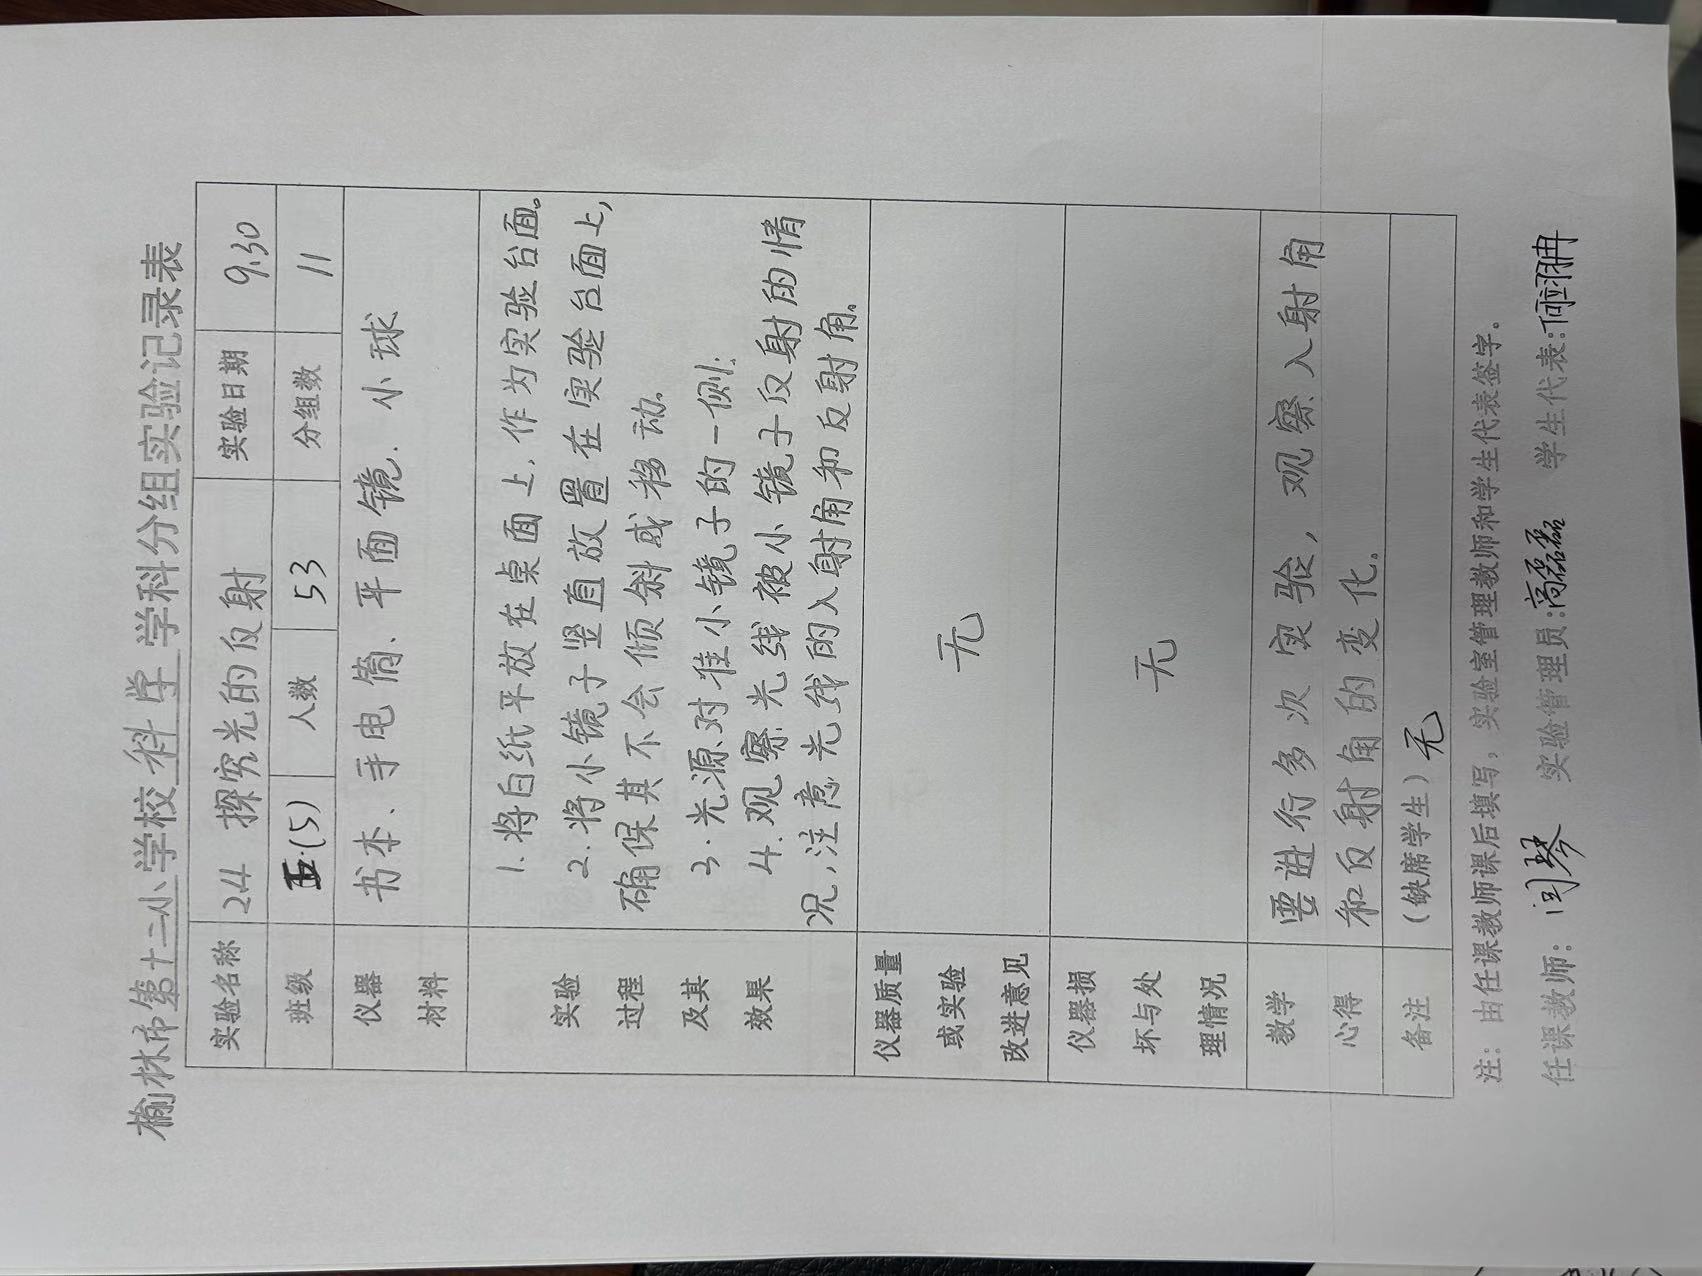 榆林市第十二小学校科学学科分组实验记录表
实验名称 24 探究光的反射 实验日期 9.30
班级 五.(5) 人数 53 分组数 11
仪器材料 书本、手电筒、平面镜、小球
实验过程及其效果
1.将白纸平放在桌面上,作为实验台面。
2.将小镜子竖直放置在实验台面上,
确保其不会倾斜或移动。
3.光源对准小镜子的一侧;
4.观察光线被小镜子反射的情
况,注意光线的入射角和反射角。
仪器质量或实验改进意见 无
仪器损坏与处理情况 无
教学心得
要进行多次实验,观察入射角
和反射角的变化.
备注 (缺席学生)无
注:由任课教师课后填写,实验室管理教师和学生代表签字。
任课教师:闫琴 实验管理员:高磊磊 学生代表: